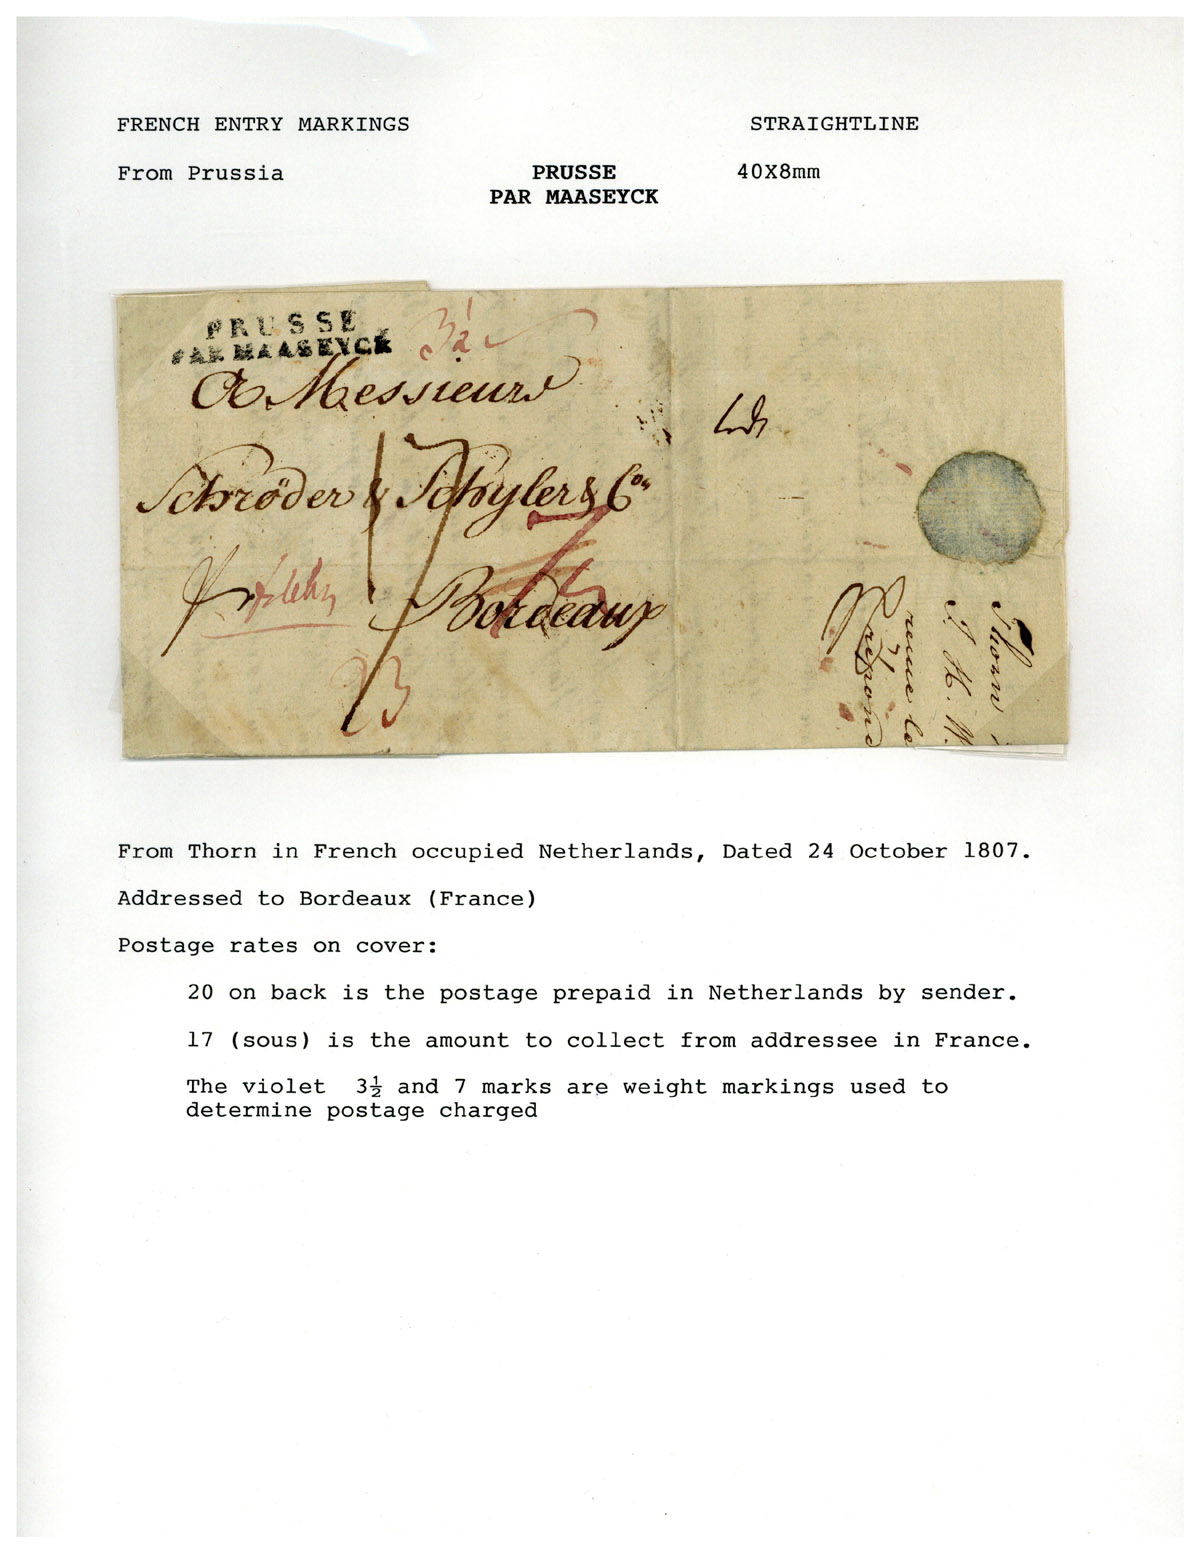 FRENCH ENTRY MARKINGS STRAIGHTLINE
From Prussia PRUSSE 40X8mm
PAR MAASEYCK
PRUSSE
PAR MAASEYCK
3½
A Messieurs
Schröder & Schÿler & Con
17
Bordeaux
Thorn
J. H. W.
reçue le
Répond
From Thorn in French occupied Netherlands, Dated 24 October 1807.
Addressed to Bordeaux (France)
Postage rates on cover:
20 on back is the postage prepaid in Netherlands by sender.
17 (sous) is the amount to collect from addressee in France.
The violet 3½ and 7 marks are weight markings used to
determine postage charged